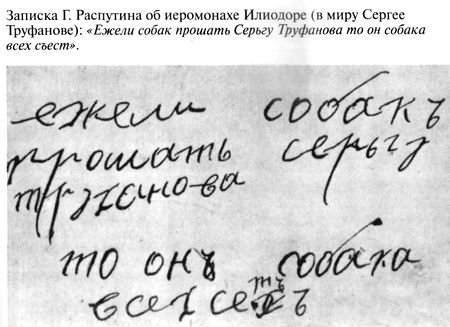 Записка Г. Распутина об иеромонахе Илиодоре (в миру Сергее
Труфанове): «Ежели собак прошать Серьгу Труфанова то он собака
всех съест».
ежели собакъ
прошать серьгу
труханова
то онъ собака
всех сестъ